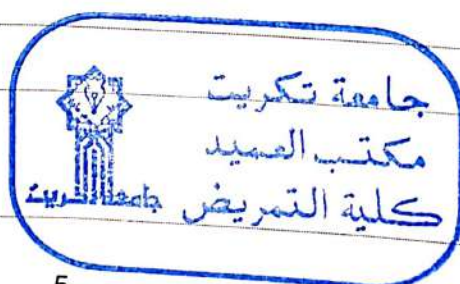 جامعة تكريت
مكتب العميد
كلية التمريض
جامعة تكريت
5